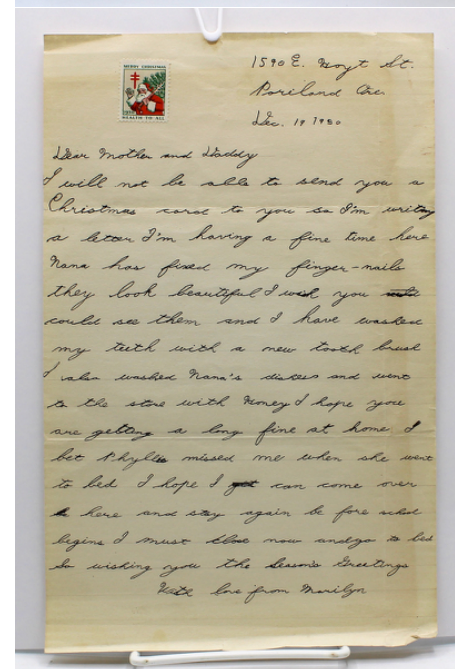 MERRY CHRISTMAS
HEALTH TO ALL
1590 E. Hoyt St.
Portland Ore.
Dec. 19
Dear Mother and Daddy
I will not be able to send you a
Christmas card to you so I'm writing
a letter I'm having a fine time here
Nana has fixed my finger-nails
they look beautiful I wish you
could see them and I have washed
my teeth with a new tooth brush
I also washed Nana's dishes and went
to the store with I hope you
are getting a long fine at home I
bet Phyllis missed me when she went
to bed I hope I can come over
here and stay again be fore school
begins I must close now and go to bed
So wishing you the Season's Greetings
With love from Marilyn